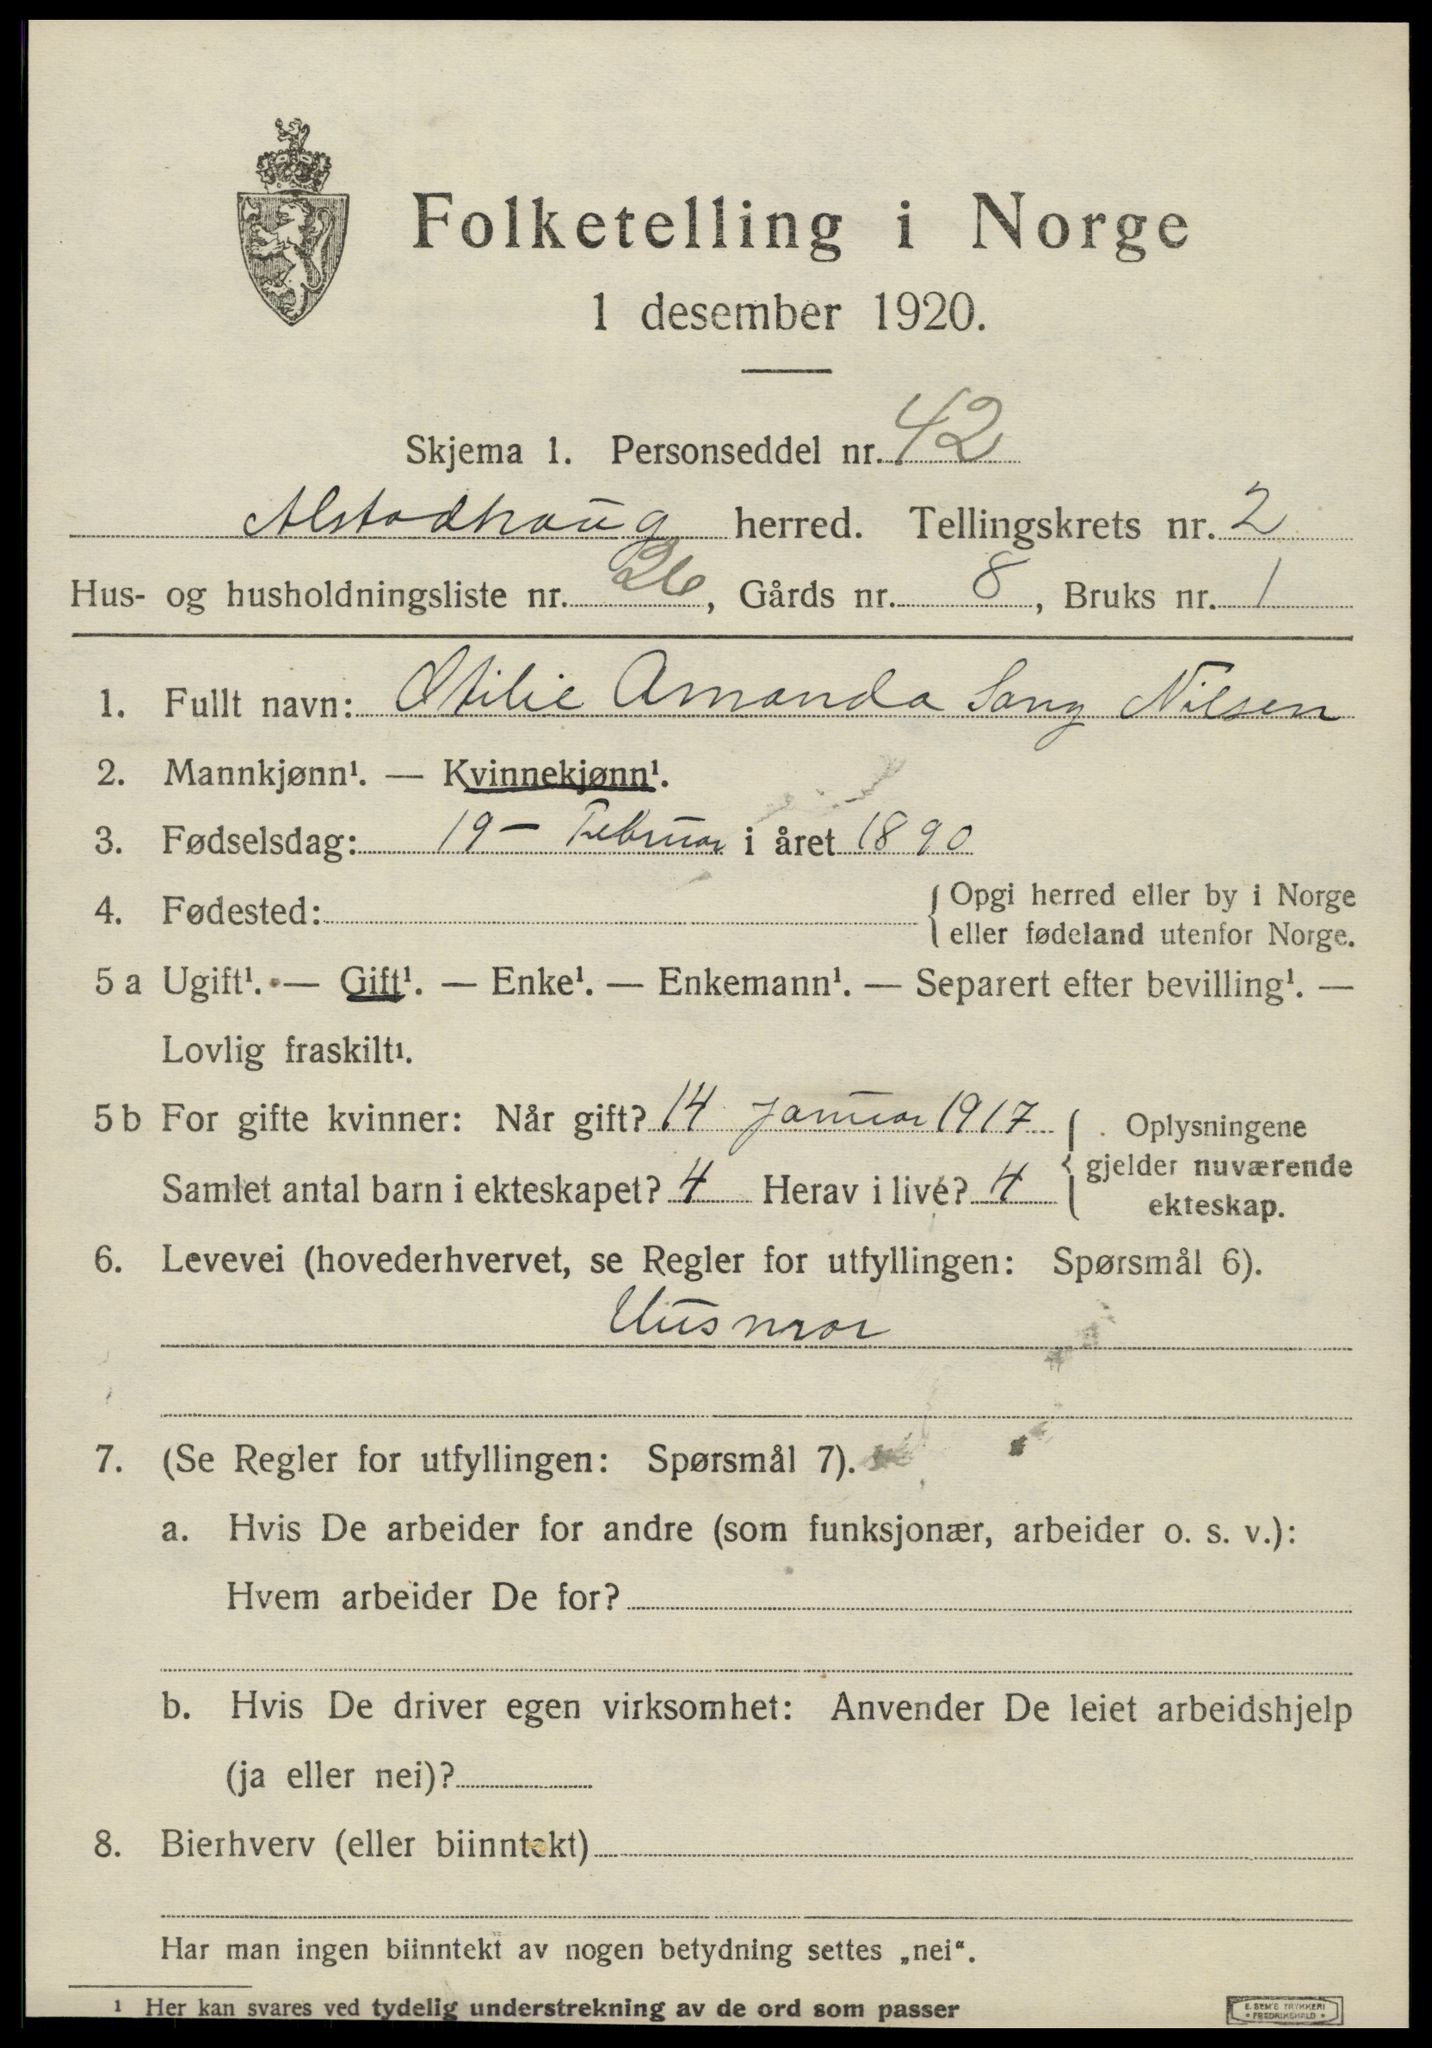 Folketelling i Norge
1 desember 1920.
Skjema 1. Personseddel nr. 42
Alstadhaug herred. Tellingskrets nr. 2
Hus- og husholdningsliste nr. 26, Gårds nr. 8, Bruks nr. 1
1. Fullt navn: Otilie Amanda Sang Nilsen
2. Mannkjønn¹. — Kvinnekjønn¹.
3. Fødselsdag: 19 – Februar i året 1890
4. Fødested: { Opgi herred eller by i Norge
eller fødeland utenfor Norge.
5 a Ugift¹. — Gift¹. — Enke¹. — Enkemann¹. — Separert efter bevilling¹. —
Lovlig fraskilt¹.
5 b For gifte kvinner: Når gift? 14 januar 1917 { Oplysningene
gjelder nuværende
Samlet antal barn i ekteskapet? 4 Herav i live? 4 ekteskap.
6. Levevei (hovederhvervet, se Regler for utfyllingen: Spørsmål 6).
Husmor
7. (Se Regler for utfyllingen: Spørsmål 7).
a. Hvis De arbeider for andre (som funksjonær, arbeider o. s. v.):
Hvem arbeider De for?
b. Hvis De driver egen virksomhet: Anvender De leiet arbeidshjelp
(ja eller nei)?
8. Bierhverv (eller biinntekt)
Har man ingen biinntekt av nogen betydning settes „nei“.
¹ Her kan svares ved tydelig understrekning av de ord som passer
E. SEM'S TRYKKERI
• FREDRIKSHALD •